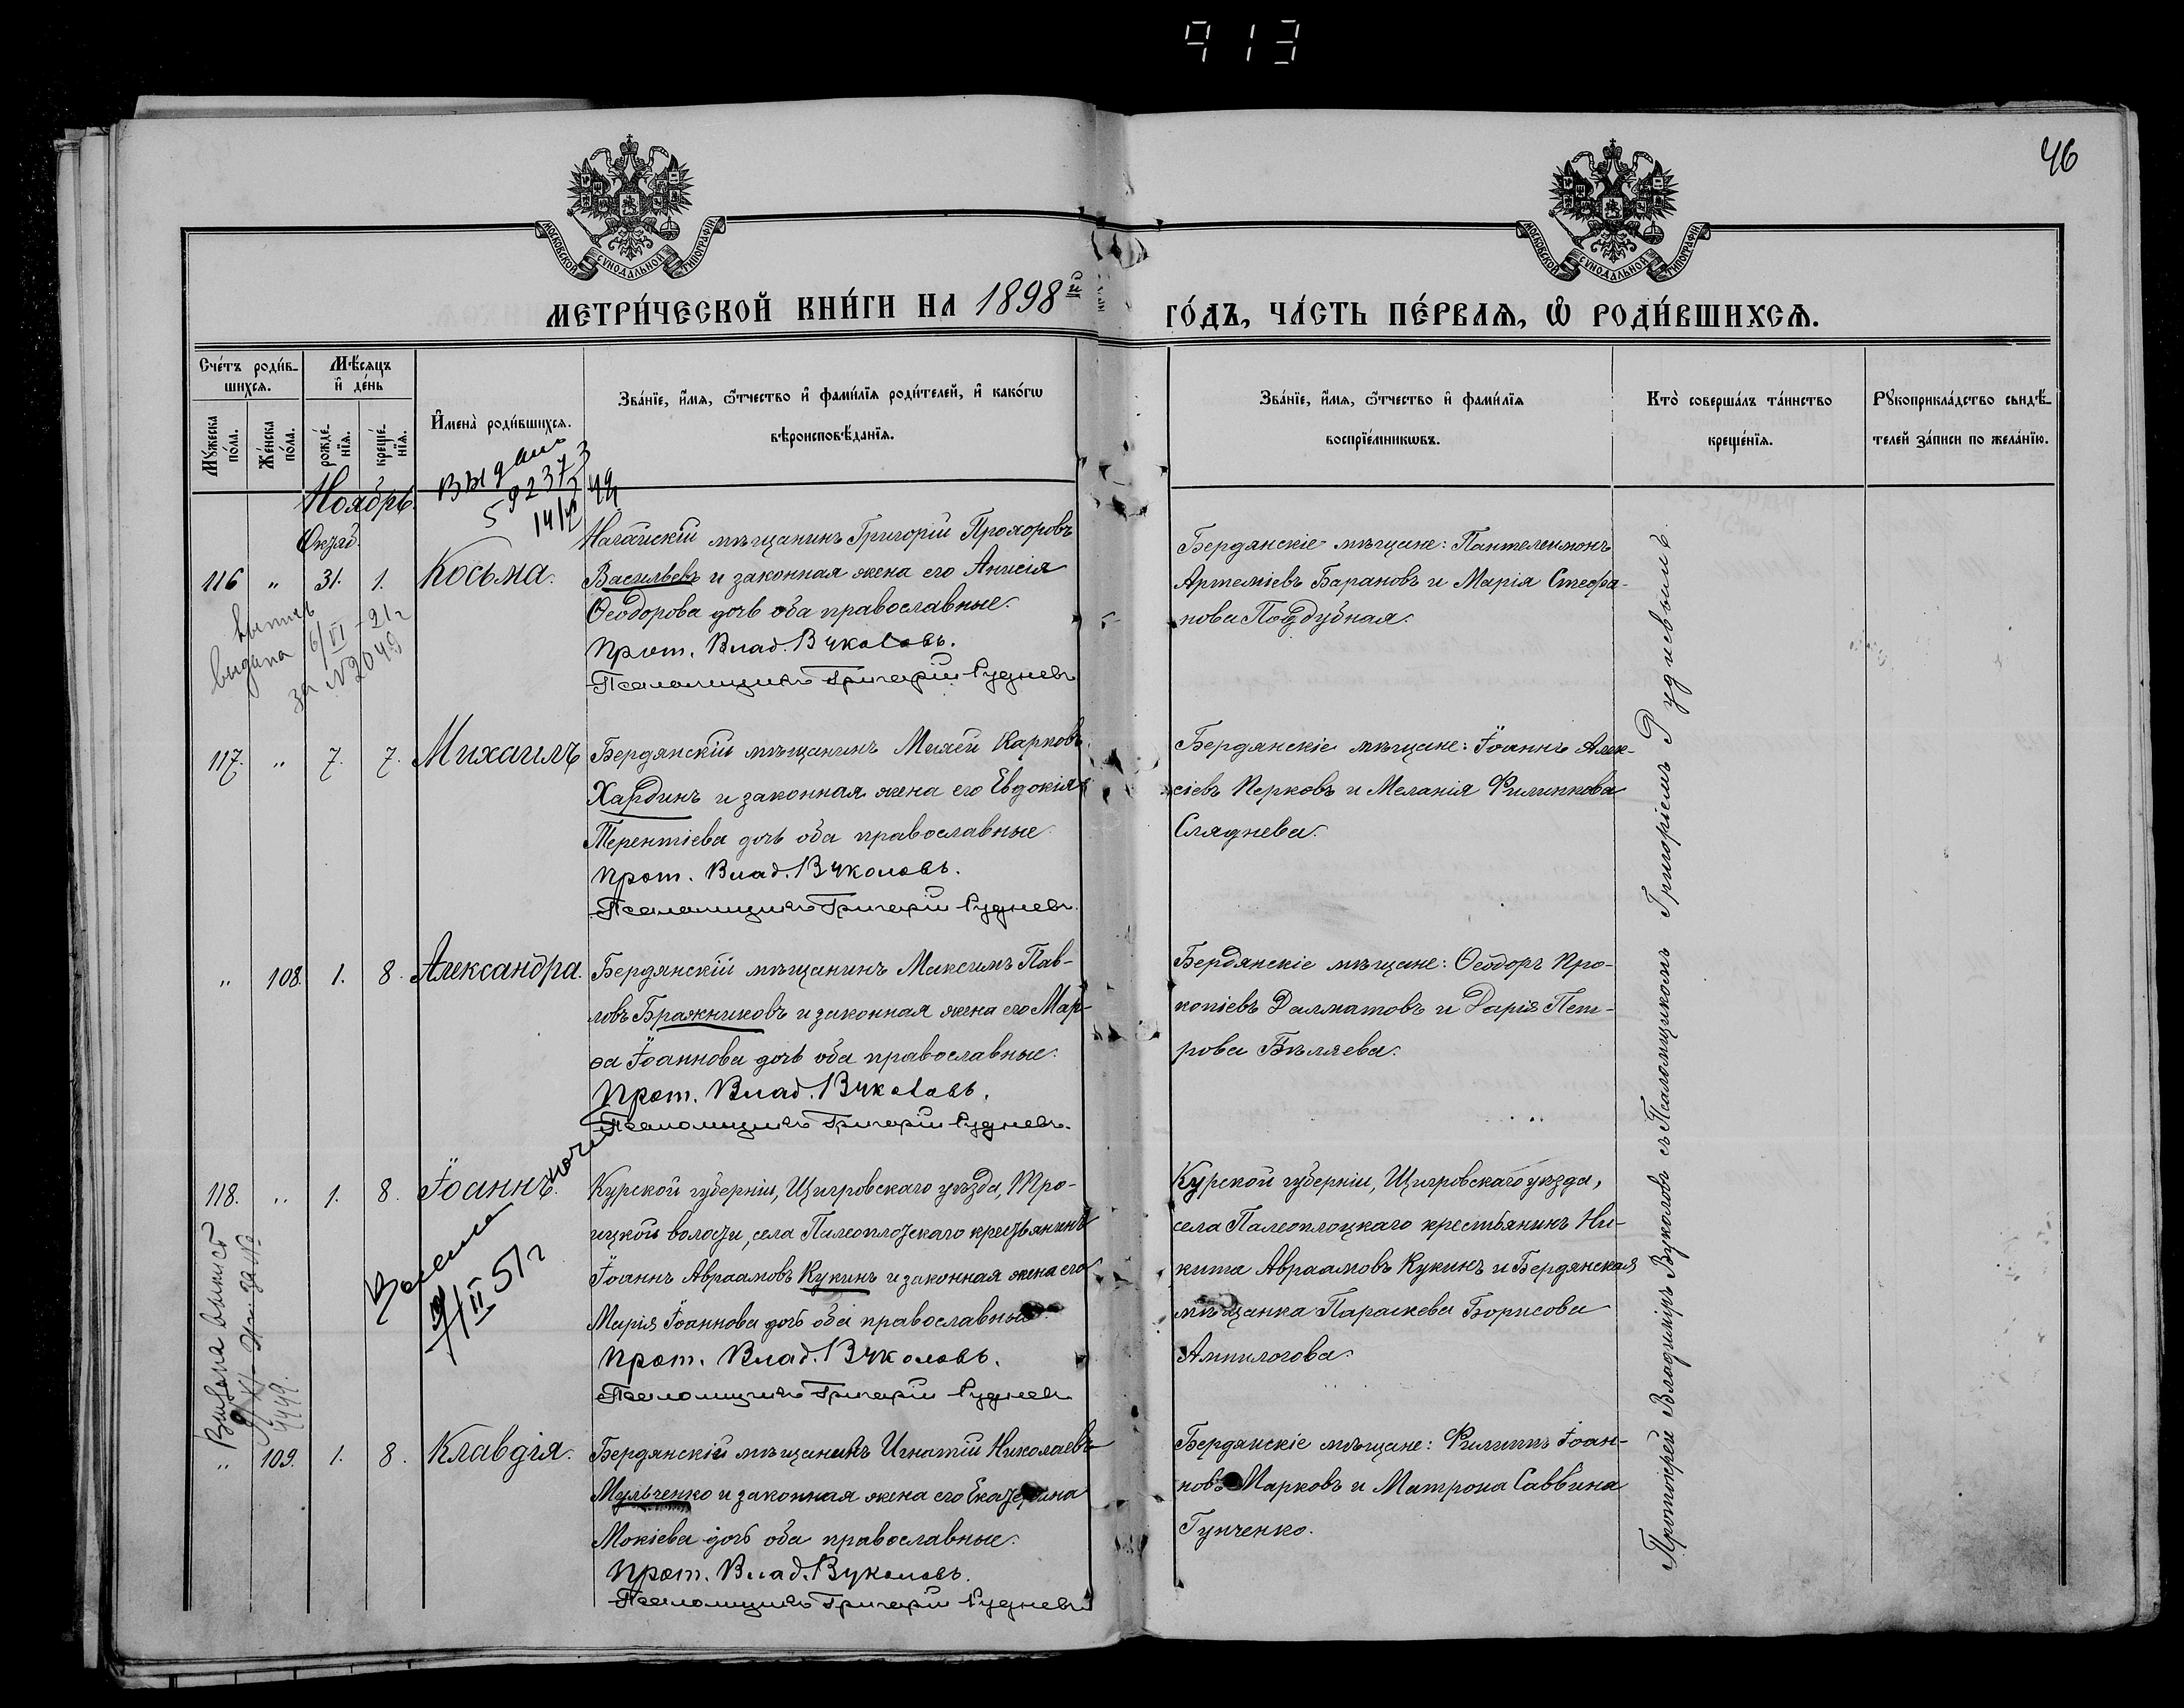 913
46
МОСКОВСКОЙ СѴНОДАЛЬНОЙ ТИПОГРАФІИ
МОСКОВСКОЙ СѴНОДАЛЬНОЙ ТИПОГРАФІИ
МЕТРИ́ЧЕСКОЙ КНИ́ГИ НА 1898й
ГО́ДЪ, ЧА́СТЬ ПЕ́РВАѦ, Ѡ҆ РОДИ́ВШИХСѦ.
Сче́тъ роди́в-
шихсѧ.
Мꙋ́жеска по́ла.
Же́нска по́ла.
Мѣ́сѧцъ
и҆ де́нь
рожде́-
нїѧ.
креще́-
нїѧ.
И҆мена̀ роди́вшихсѧ.
Зва́нїе, и҆́мѧ, ѻ҆́тчество и҆ фами́лїѧ роди́телей, и҆ како́гѡ
вѣроисповѣ́данїѧ.
Зва́нїе, и҆́мѧ, ѻ҆́тчество и҆ фами́лїѧ
воспрїе́мникѡвъ.
Кто̀ соверша́лъ та́инство
креще́нїѧ.
Рꙋкоприкла́дство свидѣ́-
телей за́писи по жела́нїю.
Ноябрь.
Октяб.
116 " 31. 1. Косьма.
Ногайскій мѣщанинъ Григорій Прохоровъ
Васильевъ и законная жена его Анисія
Ѳеодорова дочь оба православные.
Прот. Влад. Вуколовъ.
Псаломщикъ Григорій Рудневъ
Бердянскіе мѣщане: Пантелеимонъ
Артеміевъ Барановъ и Марія Стефа-
нова Поддубная.
видана 6/VI - 21 г
за № 2049
117. " 7. 7. Михаилъ
Бердянскій мѣщанинъ Мокей Карповъ
Хардинъ и законная жена его Евдокія
Терентіева дочь оба православные
Прот. Влад. Вуколовъ.
Псаломщикъ Григорій Рудневъ.
Бердянскіе мѣщане: Іоаннъ Алек-
сіевъ Перковъ и Меланія Филиппова
Сляднева.
" 108. 1. 8. Александра.
Бердянскій мѣщанинъ Максимъ Пав-
ловъ Бражниковъ и законная жена его Мар-
ѳа Іоаннова дочь оба православные.
Прот. Влад. Вуколовъ.
Псаломщикъ Григорій Рудневъ.
Бердянскіе мѣщане: Ѳеодоръ Про-
копіевъ Далматовъ и Дарія Пет-
рова Бѣляева.
118. " 1. 8. Іоаннъ.
Курской губерніи, Щигровскаго уѣзда, Тро-
ицкой волости, села Палеоплотскаго крестьянинъ
Іоаннъ Авраамовъ Кукинъ и законная жена его
Марія Іоаннова дочь оба православные.
Прот. Влад. Вуколовъ.
Псаломщикъ Григорій Рудневъ
Курской губерніи, Щигровскаго уѣзда,
села Палеоплоцкаго крестьянинъ Ни-
кита Авраамовъ Кукинъ и Бердянская
мѣщанка Параскева Борисова
Ампилогова.
Видана випись
" 109. 1. 8. Клавдія.
Бердянскій мѣщанинъ Игнатій Николаевъ
Мульченко и законная жена его Екатерина
Мокіева дочь оба православные.
Прот. Влад. Вуколовъ.
Псаломщикъ Григорій Рудневъ
Бердянскіе мѣщане: Филиппъ Іоан-
новъ Марковъ и Матрона Саввина
Гунченко.
Протоіерей Владиміръ Вуколовъ съ Псаломщикомъ Григоріемъ Рудневымъ